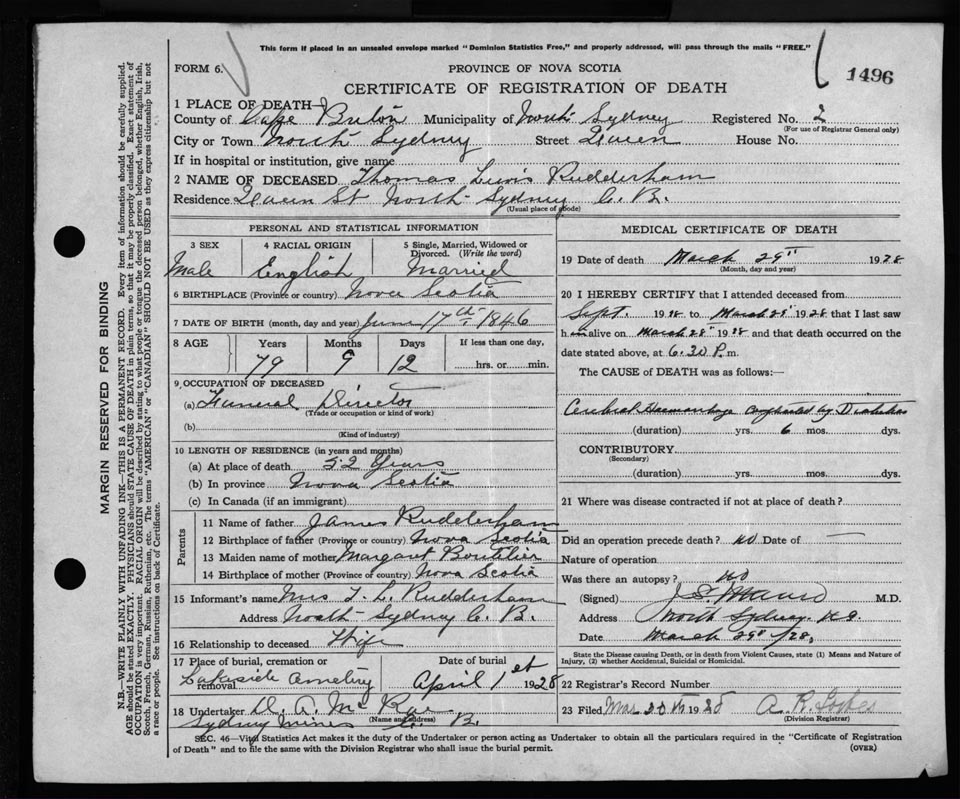 This form if placed in an unsealed envelope marked "Dominion Statistics Free," and properly addressed, will pass through the mails "FREE."
FORM 6.
PROVINCE OF NOVA SCOTIA
1496
CERTIFICATE OF REGISTRATION OF DEATH
1 PLACE OF DEATH—
County of Cape Breton Municipality of North Sydney Registered No. 2
(For use of Registrar General only)
City or Town North Sydney Street Queen House No.
If in hospital or institution, give name
2 NAME OF DECEASED Thomas Lewis Rudderham
Residence Queen St North Sydney C. B.
(Usual place of abode)
PERSONAL AND STATISTICAL INFORMATION
3 SEX 4 RACIAL ORIGIN 5 Single, Married, Widowed or Divorced. (Write the word)
Male English Married
6 BIRTHPLACE (Province or country) Nova Scotia
7 DATE OF BIRTH (month, day and year) June 17th 1846
8 AGE Years Months Days If less than one day,
79 9 12 hrs. or min.
9 OCCUPATION OF DECEASED
(a) Funeral Director
(Trade or occupation or kind of work)
(b)
(Kind of industry)
10 LENGTH OF RESIDENCE (in years and months)
(a) At place of death 52 Years
(b) In province Nova Scotia
(c) In Canada (if an immigrant)
Parents
11 Name of father James Rudderham
12 Birthplace of father (Province or country) Nova Scotia
13 Maiden name of mother Margaret Boutilier
14 Birthplace of mother (Province or country) Nova Scotia
15 Informant's name Mrs T. L. Rudderham
Address North Sydney C. B.
16 Relationship to deceased Wife
17 Place of burial, cremation or removal Lakeside Cemetery
Date of burial April 1st 1928
18 Undertaker D. A. McRae
(Name and address)
Sydney Mines C. B.
MEDICAL CERTIFICATE OF DEATH
19 Date of death March 29th 1928
(Month, day and year)
20 I HEREBY CERTIFY that I attended deceased from
Sept. 1928 to March 28th 1928 that I last saw
him alive on March 28th 1928 and that death occurred on the
date stated above, at 6.30 P. m.
The CAUSE of DEATH was as follows:—
Cerebral Haemorrhage complicated by Diabetes
(duration) yrs. 6 mos. dys.
CONTRIBUTORY
(Secondary)
(duration) yrs. mos. dys.
21 Where was disease contracted if not at place of death?
Did an operation precede death? no Date of —
Nature of operation
Was there an autopsy? no
(Signed) M.D.
Address North Sydney. N.S.
Date March 29th /28.
State the Disease causing Death, or in death from Violent Causes, state (1) Means and Nature of
Injury, (2) whether Accidental, Suicidal or Homicidal.
22 Registrar's Record Number
23 Filed Mar 30th 1928 A. R. Forbes
(Division Registrar)
SEC. 46—Vital Statistics Act makes it the duty of the Undertaker or person acting as Undertaker to obtain all the particulars required in the "Certificate of Registration
of Death" and to file the same with the Division Registrar who shall issue the burial permit.
(OVER)
MARGIN RESERVED FOR BINDING
N.B.—WRITE PLAINLY WITH UNFADING INK—THIS IS A PERMANENT RECORD. Every item of information should be carefully supplied.
AGE should be stated EXACTLY. PHYSICIANS should STATE CAUSE OF DEATH in plain terms, so that it may be properly classified. Exact statement of
OCCUPATION is very important. RACIAL ORIGIN will be described by stating to what people or tongue the deceased person belonged, whether English, Irish,
Scotch, French, German, Russian, Ruthenian, etc. The terms "AMERICAN" or "CANADIAN" SHOULD NOT BE USED as they express citizenship but not
a race or people. See instructions on back of Certificate.